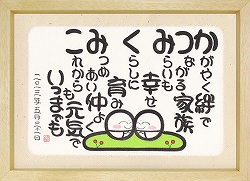 かがやく絆で
つながる家族
みらいも幸せ
くらしに育み
みつめあい仲よく
これからも元気で
いつまでも